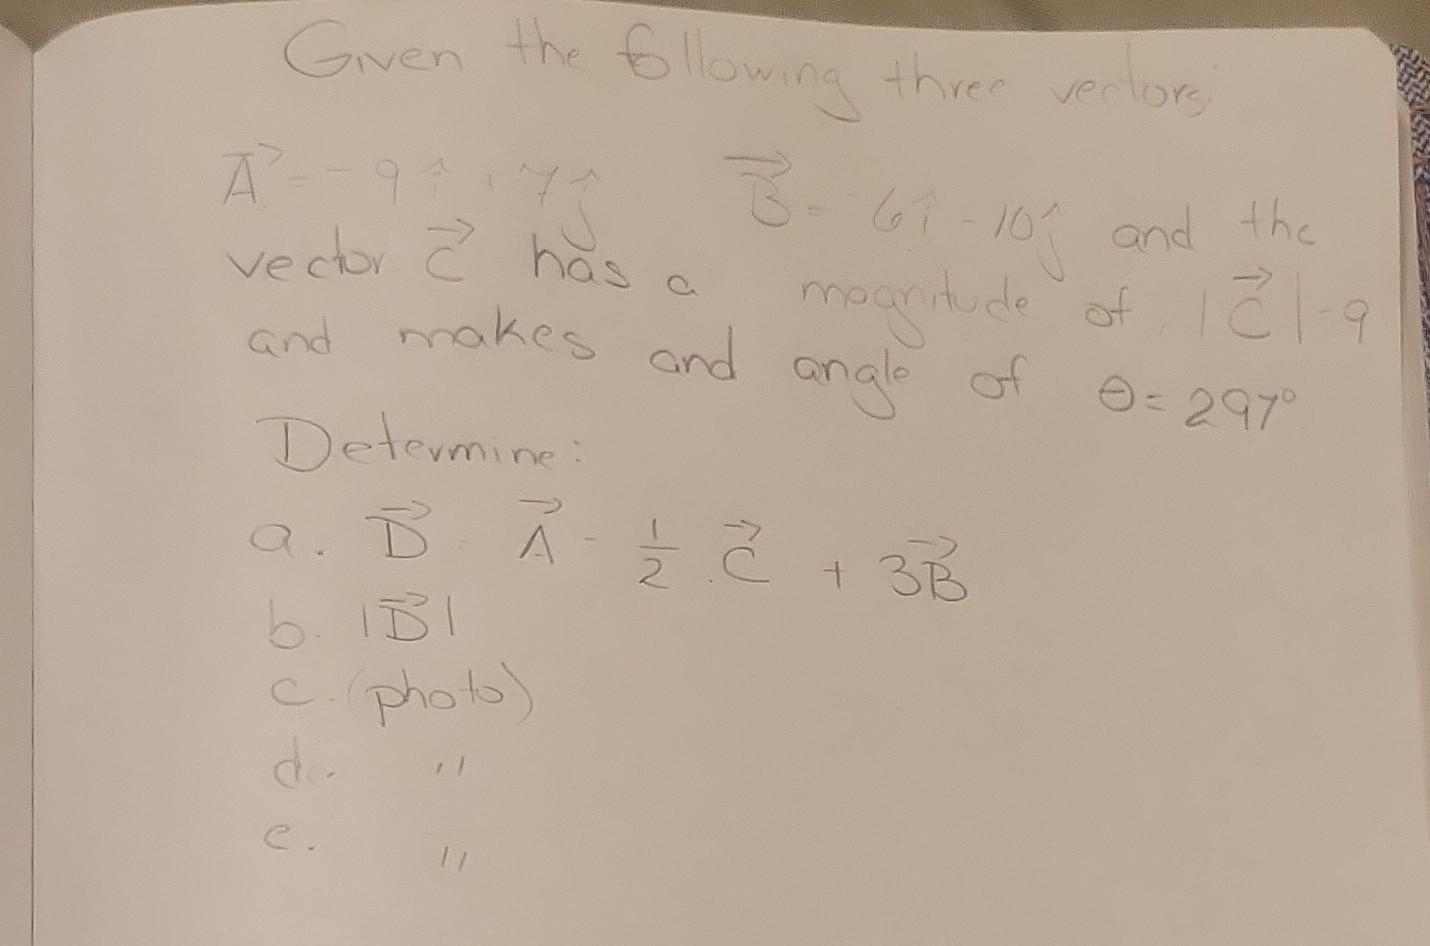 Given the following three vectors:
A⃗ = -9î + 7ĵ B⃗ = 6î - 10ĵ and the
vector C⃗ has a magnitude of |C⃗| = 9
and makes and angle of θ = 297°
Determine:
a. D⃗ = A⃗ - 1/2 C⃗ + 3B⃗
b. |D⃗|
c. (photo)
d. "
e. "